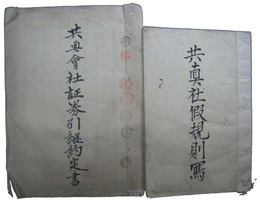 共眞會社証券引継約定書
共眞社假規則寫